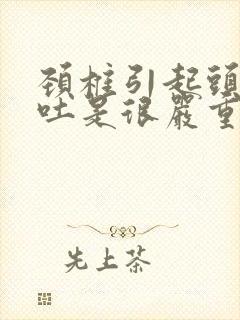 頚椎引起頭
吐是很嚴重
先上茶